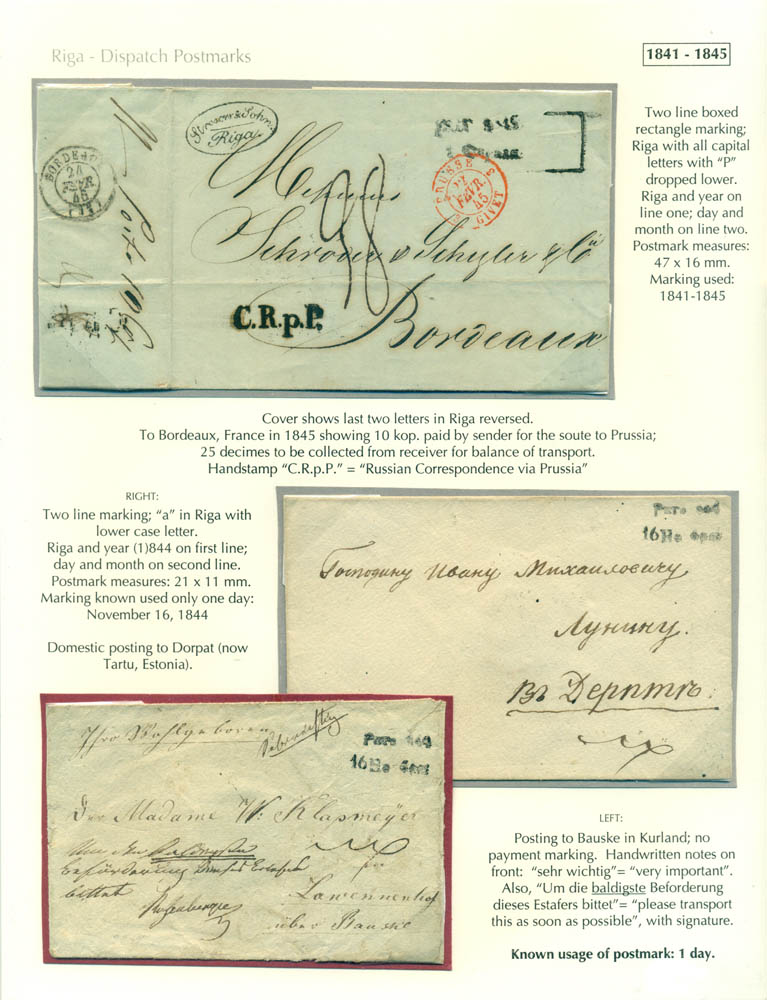 Riga - Dispatch Postmarks
1841 - 1845
Stresow & Sohn
Riga
BORDEAUX
24
FEVR
45
(31)
PRUSSE
22
FEVR.
45
GIVET
Messieurs
Schröder & Schyler & Co
C.R.p.P.
Bordeaux
Two line boxed
rectangle marking;
Riga with all capital
letters with “P”
dropped lower.
Riga and year on
line one; day and
month on line two.
Postmark measures:
47 x 16 mm.
Marking used:
1841-1845
Cover shows last two letters in Riga reversed.
To Bordeaux, France in 1845 showing 10 kop. paid by sender for the soute to Prussia;
25 decimes to be collected from receiver for balance of transport.
Handstamp “C.R.p.P.” = “Russian Correspondence via Prussia”
RIGHT:
Two line marking; “a” in Riga with
lower case letter.
Riga and year (1)844 on first line;
day and month on second line.
Postmark measures: 21 x 11 mm.
Marking known used only one day:
November 16, 1844
Domestic posting to Dorpat (now
Tartu, Estonia).
Рига 844
16 Ноября
Господину Ивану Михаиловичу
Лунину.
въ Дерптъ.
Рига 844
16 Ноября
Ihro Wohlgeboren
Der Madame W: Klapmeyer
Um die baldigste
Beförderung dieses Estafets
bittet
pr
Lawennenhof
über Bauske
LEFT:
Posting to Bauske in Kurland; no
payment marking. Handwritten notes on
front: “sehr wichtig”= “very important”.
Also, “Um die baldigste Beforderung
dieses Estafers bittet”= “please transport
this as soon as possible”, with signature.
Known usage of postmark: 1 day.